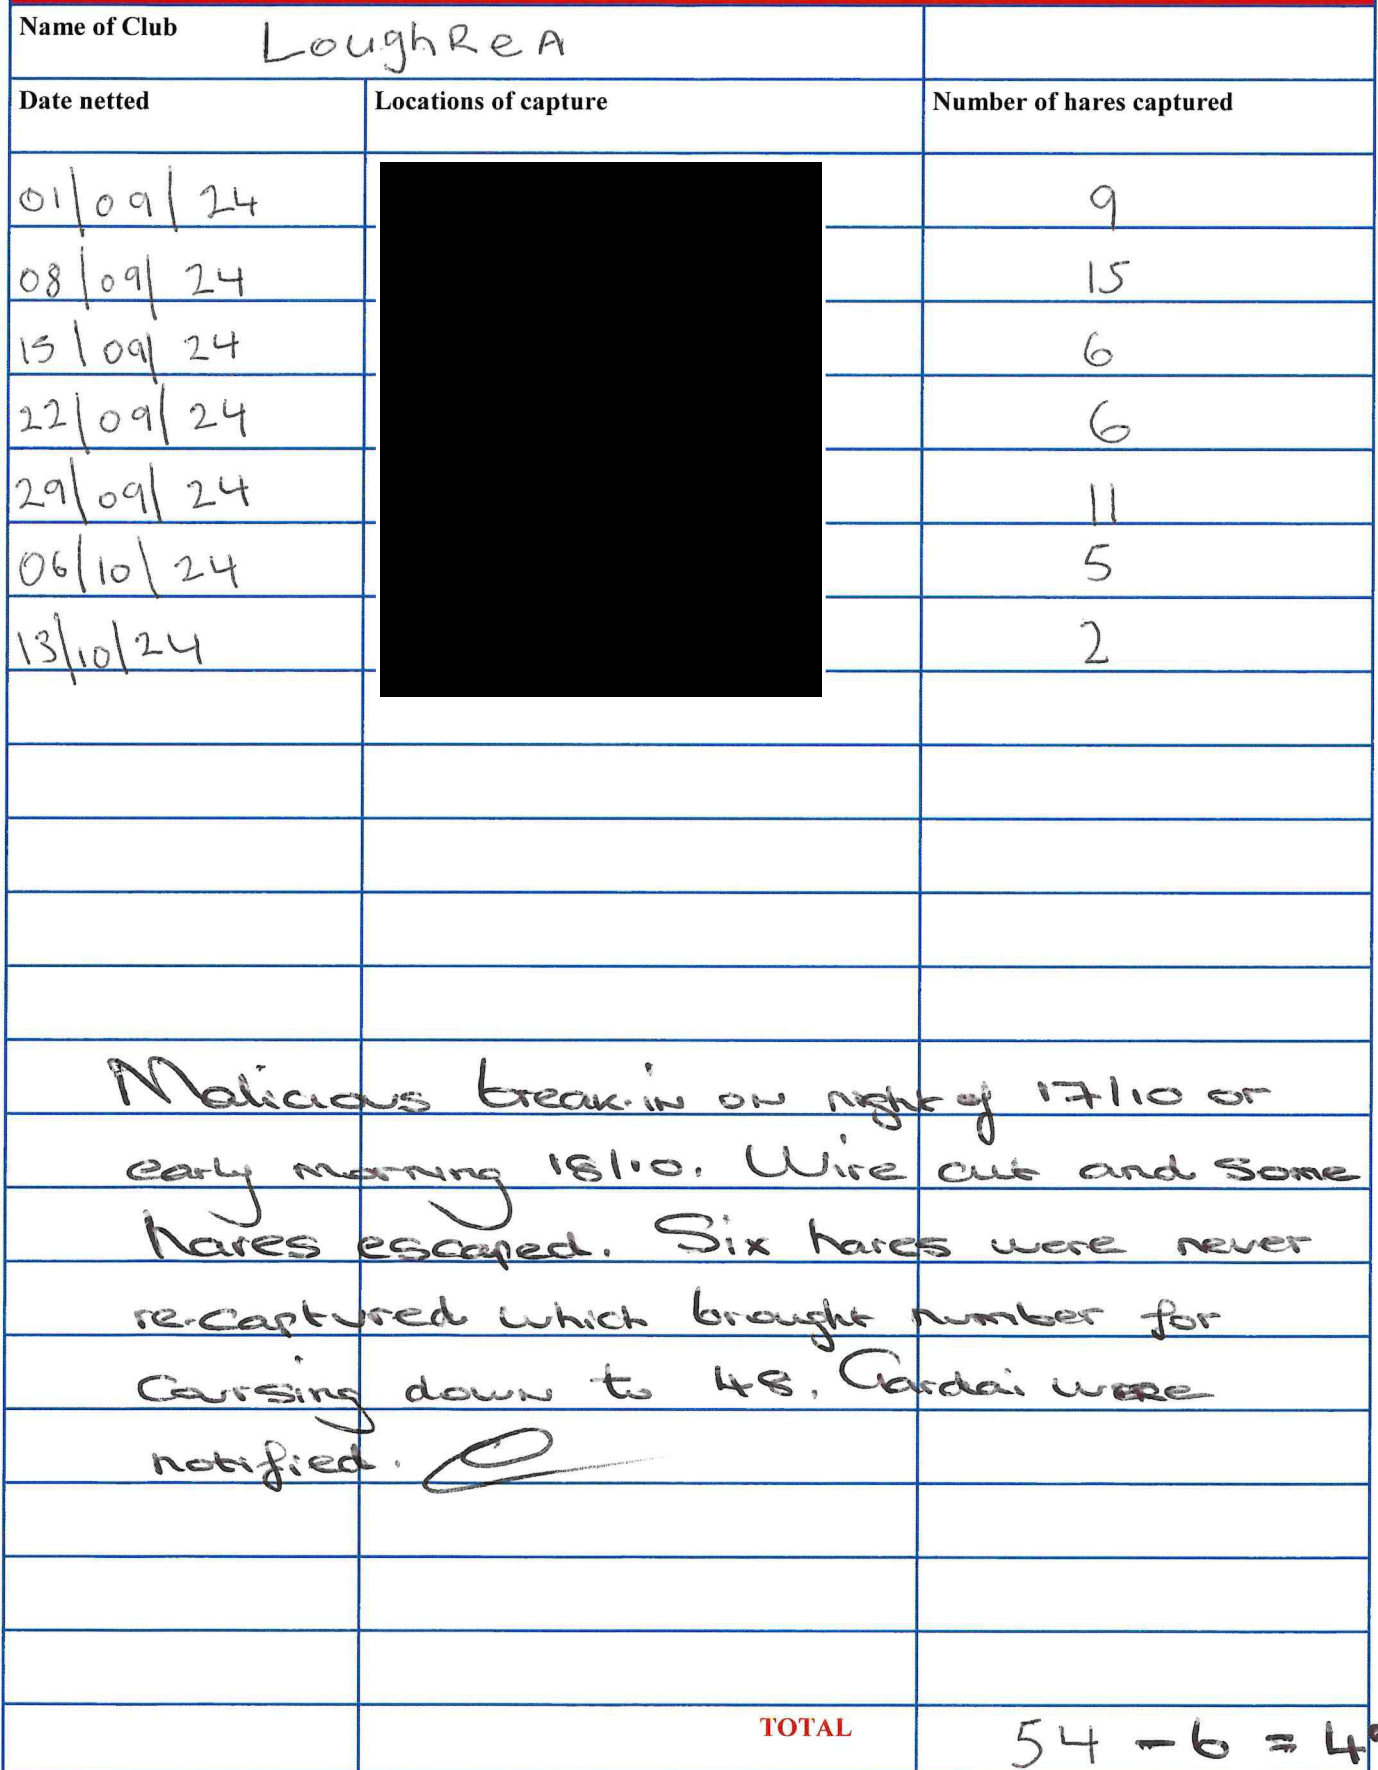 Name of Club LoughReA
Date netted Locations of capture Number of hares captured
01/09/24 9
08/09/24 15
15/09/24 6
22/09/24 6
29/09/24 11
06/10/24 5
13/10/24 2
Malicious break-in on night of 17/10 or
early morning 18/10. Wire cut and some
hares escaped. Six hares were never
re-captured which brought number for
Coursing down to 48. Gardai were
notified.
TOTAL 54 - 6 = 4